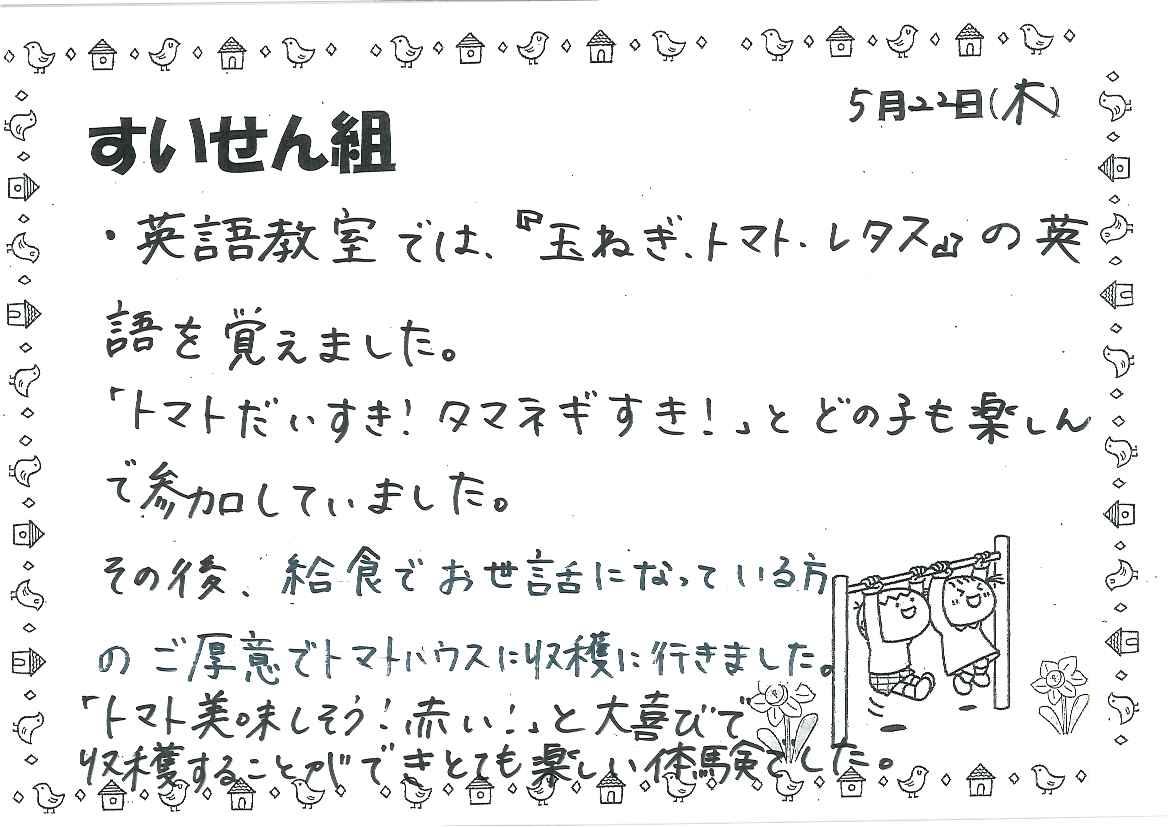 5月22日(木)
すいせん組
・英語教室では、『玉ねぎ、トマト、レタス』の英
語を覚えました。
「トマトだいすき!タマネギすき!」とどの子も楽しん
で参加していました。
その後、給食でお世話になっている方
のご厚意でトマトハウスに収穫に行きました。
「トマト美味しそう!赤い!」と大喜びで
収穫することができとても楽しい体験でした。